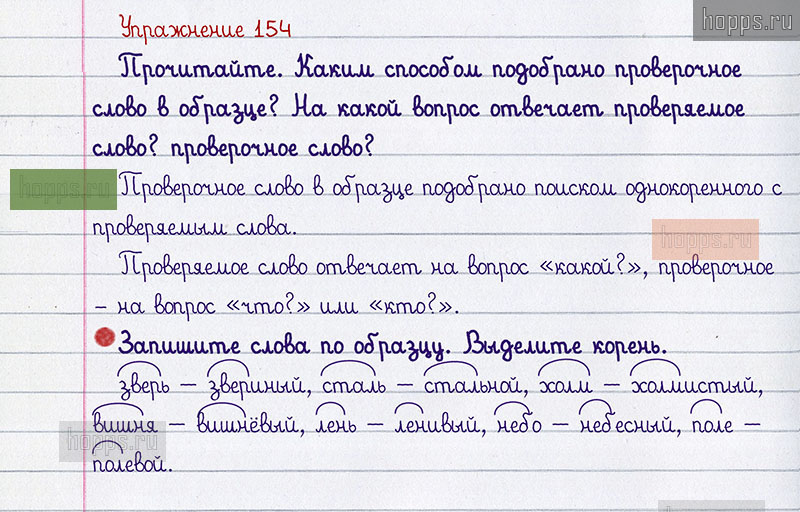 Упражнение 154
hopps.ru
Прочитайте. Каким способом подобрано проверочное
слово в образце? На какой вопрос отвечает проверяемое
слово? проверочное слово?
hopps.ru
Проверочное слово в образце подобрано поиском однокоренного с
проверяемым слова.
hopps.ru
Проверяемое слово отвечает на вопрос «какой?», проверочное
– на вопрос «что?» или «кто?».
Запишите слова по образцу. Выделите корень.
зверь – звериный, сталь – стальной, холм – холмистый,
вишня – вишнёвый, лень – ленивый, небо – небесный, поле –
hopps.ru
полевой.